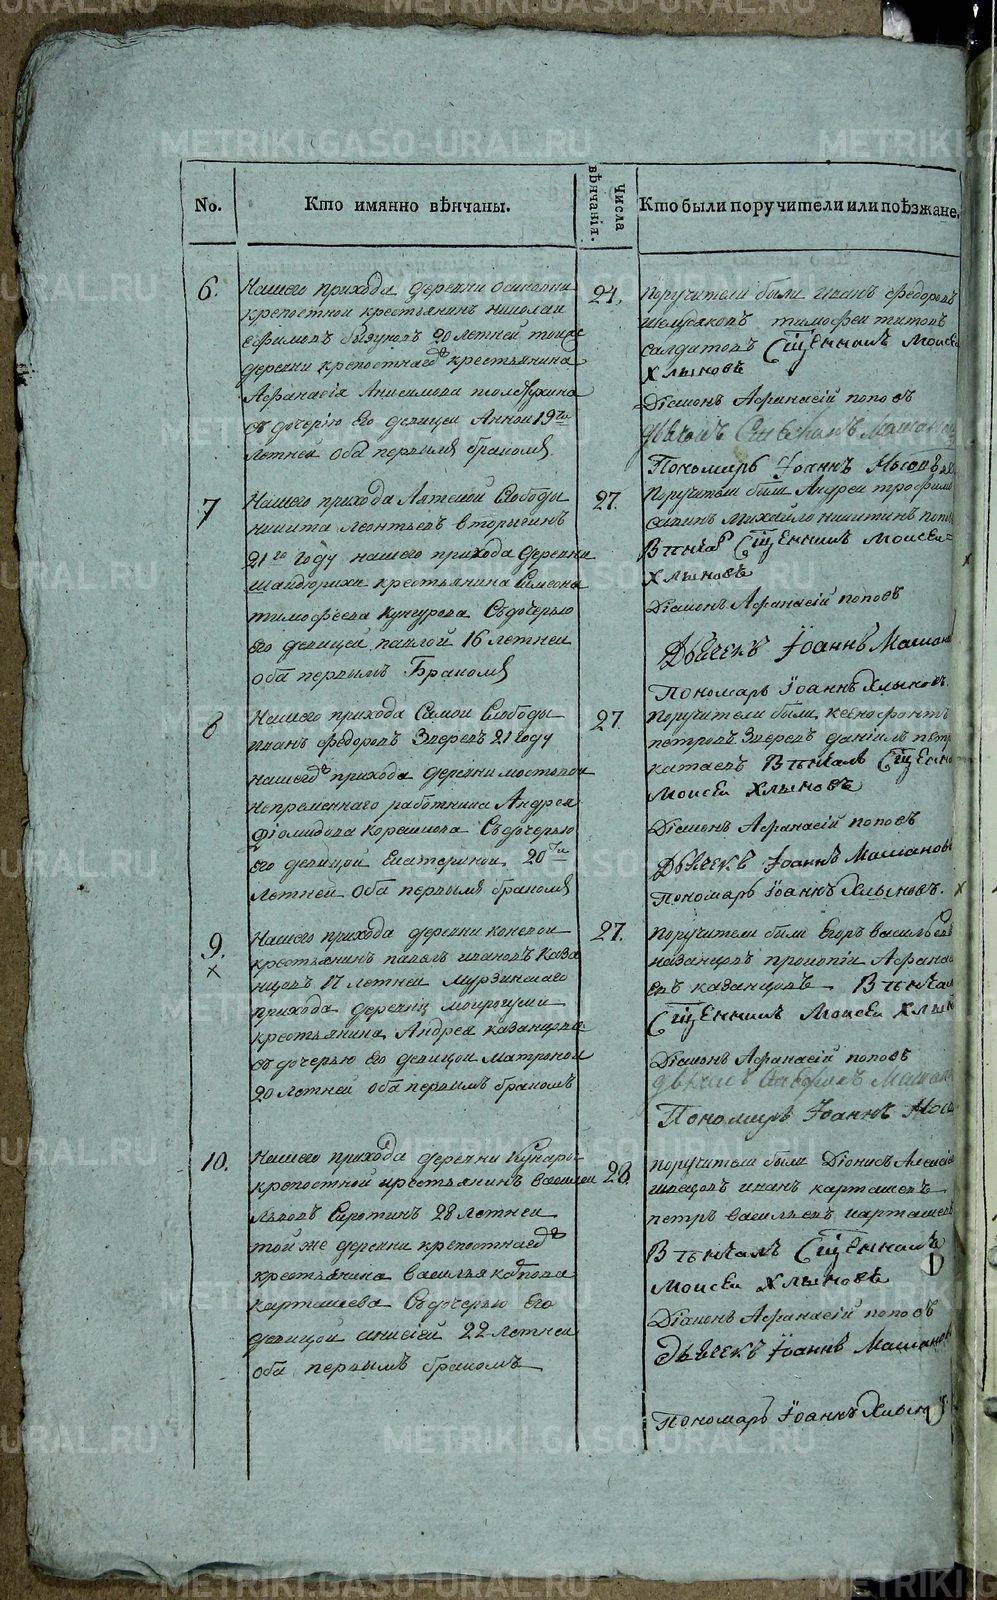 METRIKI.GASO-URAL.RU
No.
Кто имянно вѣнчаны.
Числа вѣнчанія.
Кто были поручители или поѣзжане.
6.
Нашего прихода деревни осиновки
крепостной крестьянинъ николай
ефимовъ 20 летней тоиже
деревни крепостнаго крестьянина
Афанасія Анисимова
съ дочерію Его девицеи Анной 19ти
летней оба первымъ бракомъ
24.
Поручители были иванъ федоровъ
тимофеи титовъ
салдатовъ Сщенникъ Моисеи
Хлыновъ
Діаконъ Афанасій поповъ
Пономарь Іоаннъ
7
Нашего прихода Аятской Слободы
никита леонтьевъ вторыгинъ
21го году нашего прихода деревни
шайдурихи крестьянина Симеона
тимофѣева Кунгурова Съ дочерью
Его девицей павлой 16 летней
оба первымъ Бракомъ
27.
Поручители были Андреи трофимовъ
Михайло никитинъ
Венчалъ Сщенникъ Моисеи
Хлыновъ
Діаконъ Афанасій поповъ
Дьячекъ Іоаннъ
Пономарь Іоаннъ Хлыновъ.
8
Нашего прихода Самой Слободы
иванъ федоровъ Зверевъ 21 году
нашего прихода деревни мостовой
непременнаго работника Андрея
Діомидова Корешкова Съ дочерью
Его девицой Екатериной 20ти
летней Оба первымъ бракомъ
27
Поручители были ксенофонтъ
петровъ Зверевъ даніилъ
катаевъ Венчалъ Сщенникъ
Моисеи Хлыновъ
Діаконъ Афанасій поповъ
Дьячекъ Іоаннъ
Пономарь Іоаннъ Хлыновъ.
9.
Нашего прихода деревни коневой
крестьянинъ павелъ ивановъ Каза
нцовъ 17 летней Мурзинскаго
прихода деревни
крестьянина Андрея казанцова
съ дочерью Его девицой матроной
20 летней оба первымъ бракомъ
27.
Поручители были Егоръ васильевъ
казанцовъ прокопій Афанась
евъ казанцовъ Венчалъ
Сщенникъ Моисеи Хлыновъ
Діаконъ Афанасій поповъ
Пономарь Іоаннъ
10.
Нашего прихода деревни
крепостной крестьянинъ василей
львовъ Сиротинъ 28 летней
той же деревни крепостнаго
крестьянина василья
карташева Съ дочерью Его
девицой анисіей 22 летней
оба первымъ бракомъ
28.
поручители были Діонисъ
швецовъ иванъ карташевъ
петръ васильевъ карташевъ
Венчалъ Сщенникъ
Моисеи Хлыновъ
Діаконъ Афанасій поповъ
Дьячекъ Іоаннъ
Пономарь Іоаннъ Хлыновъ